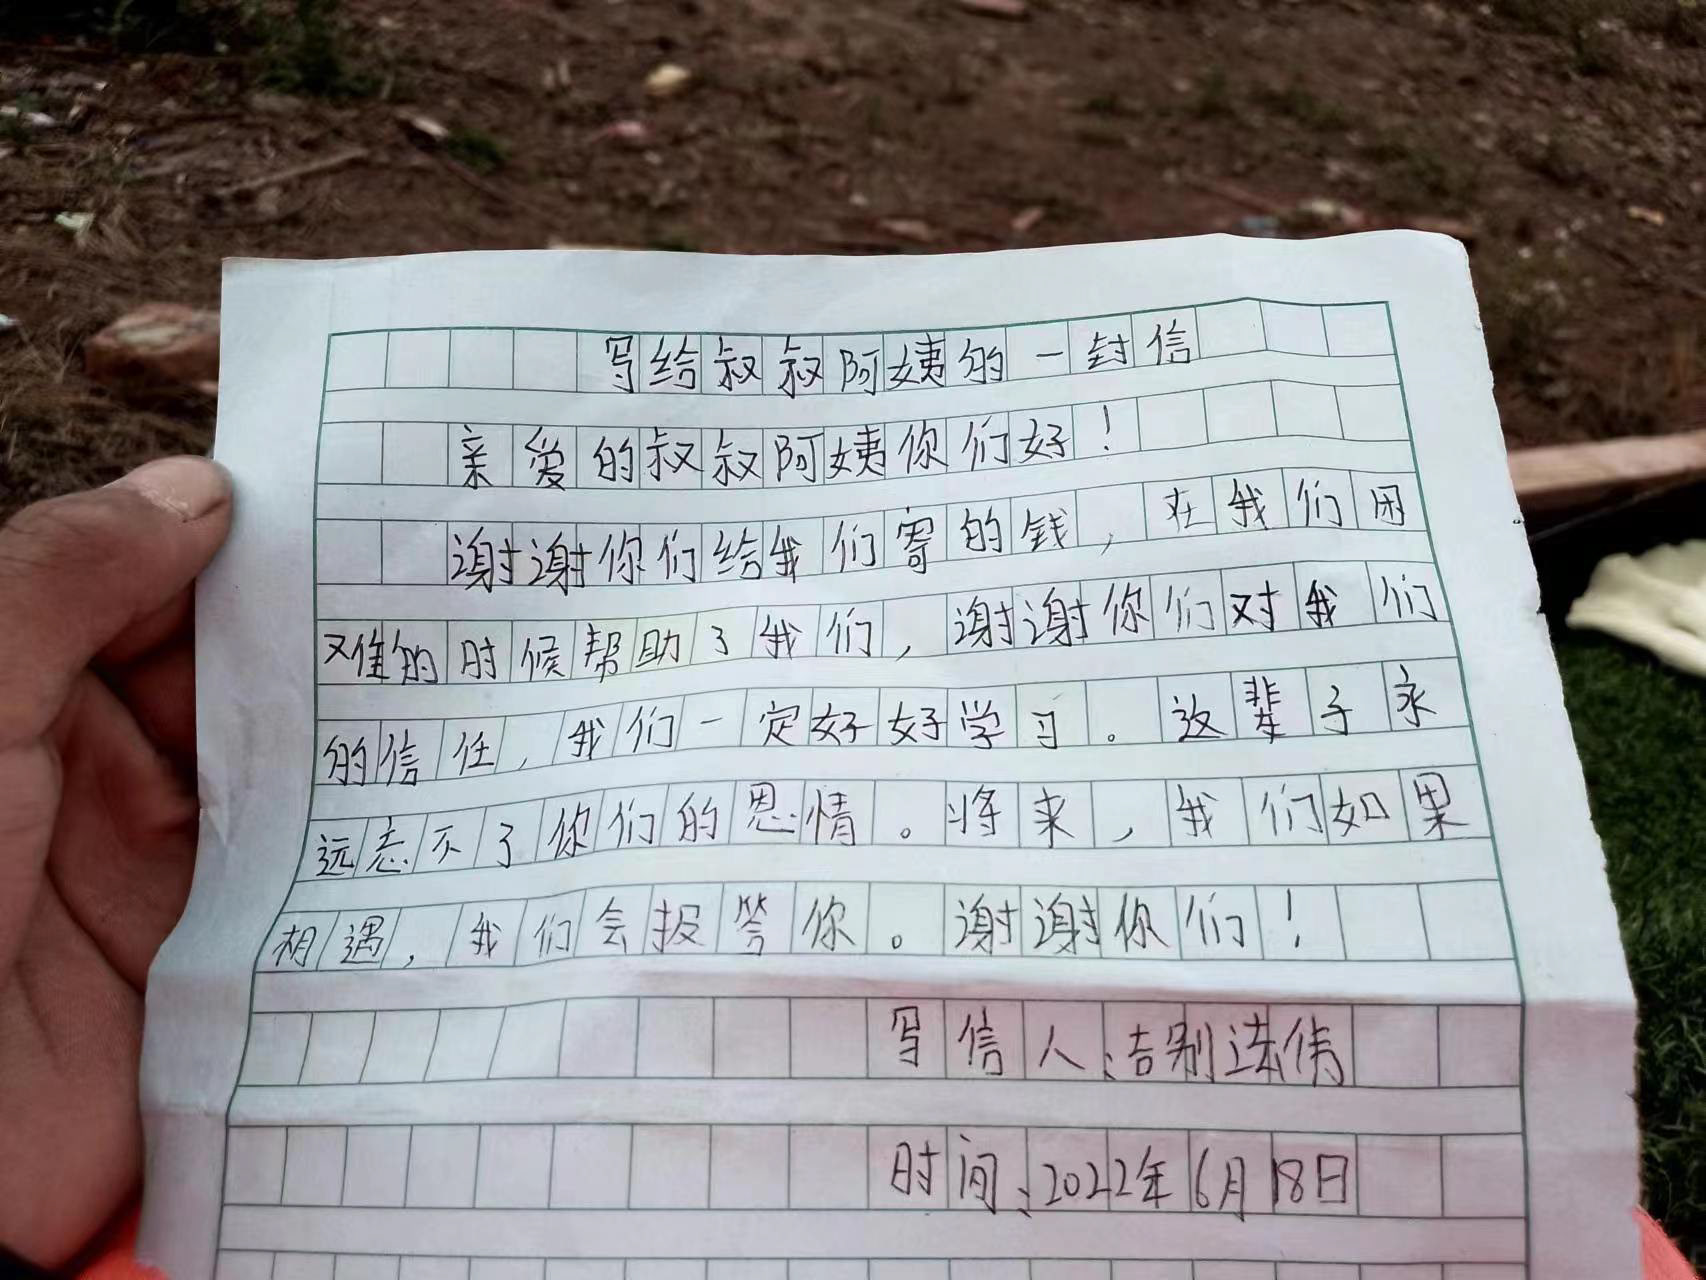 写给叔叔阿姨的一封信
亲爱的叔叔阿姨你们好！
谢谢你们给我们寄的钱，在我们困
难的时候帮助了我们，谢谢你们对我们
的信任，我们一定好好学习。这辈子永
远忘不了你们的恩情。将来，我们如果
相遇，我们会报答你。谢谢你们！
写信人：吉别法伟
时间：2022年6月18日